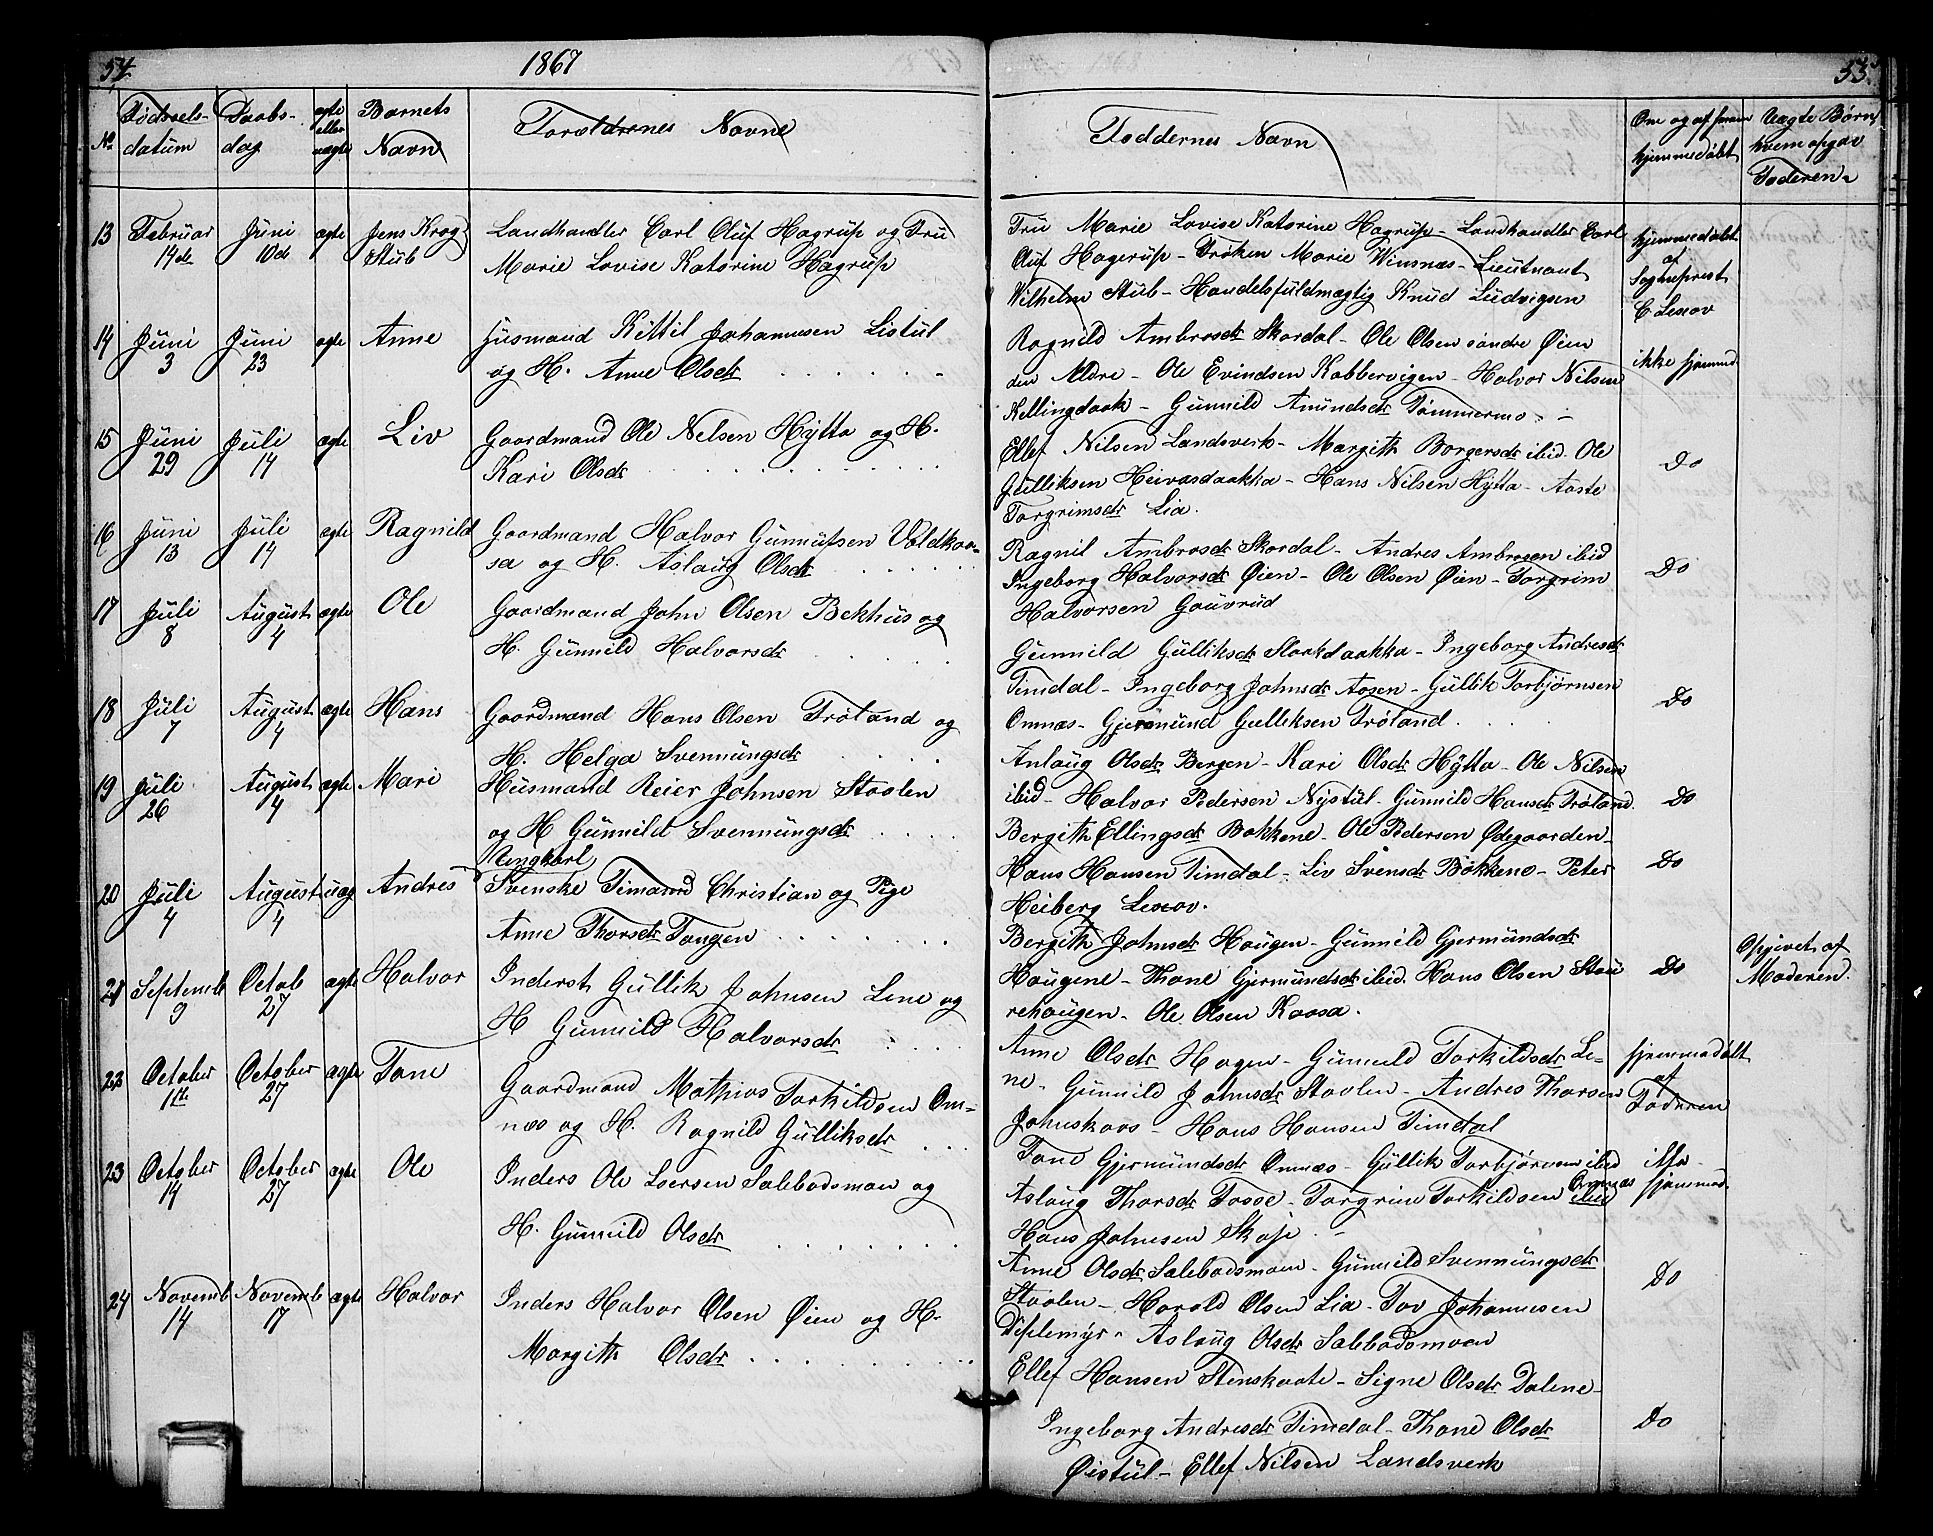 54.
1867
Fødsels-
datum
Daabs-
dag
ægte
eller
uægte
Barnets
Navn
Forældrenes Navne
No
13 Februar Juni ægte Jens Krog Landhandler Carl Oluf Hagrup og Fru
14de 10de Stub Marie Lovise Katerine Hagrup
14 Juni Juni ægte Anne Husmand Kittil Johannesen Listul
3 23 og H. Anne Olsdr
15 Juni Juli ægte Liv Gaardmand Ole Nelsen Hÿtta og H.
29 14 Kari Olsdr
16 Juni Juli ægte Ragnild Gaardmand Halvor Gunnulfsen Valdkaa-
13 14 sa og H. Aslaug Olsdr
17 Juli August ægte Ole Gaardmand John Olsen Bekhus og
8 4 H. Gunnild Halvorsdr
18 Juli August ægte Hans Gaardmand Hans Olsen Frøland og
7 4 H. Helga Svennungsdr
19 Juli August ægte Mari Husmand Reier Johnsen Staalen
26 4 og H Gunnild Svennungsdr
Ringkarl
20 Juli August uæg Andres Svenske Christian og Pige
4 4 Anne Thorsdr Tangen
21 Septemb Octob ægte Halvor Inderst Gullik Johnsen Lene og
9 27 H Gunnild Halvorsdr
22 October October ægte Tone Gaardmand Mathias Torkildsen Om-
1ste 27 næs og H. Ragnild Gulliksdr
23 October October ægte Ole Inders Ole Loersen Salebodsmoen og
14 27 H. Gunnild Olsdr
24 Novemb Novemb ægte Halvor Inders Halvor Olsen Øien og H.
14 17 Margith Olsdr
53.
Faddernes Navn
Om og af hvem
hjemmedøbt
Uægte Børn
hvem opgav
Faderen
Fru Marie Lovise Katerine Hagrup - Landhandler Carl
Oluf Hagerup - Frøken Marie Winsnæs - Lieutnant
Vilhelm Stub - Handelsfuldmægtig Knud Ludvigsen
hjemmedøbt
af
Sogneprest
C Lexov
Ragnild Ambrosdr Skardal - Ole Olsen søndre Øien
den Ældre - Ole Evindsen Kabbervigen - Halvor Nilsen
Nellingdaak - Gunnild Amundsdr Tømmermo
ikke hjemmed
Ellef Nilsen Landsverk - Margith Borgersdr ibid. Ole
Gulliksen Heivasdaakka - Hans Nilsen Hÿtta - Aaste
Torgrimsdr Lia.
Do
Ragnil Ambrosdr Skardal - Andres Ambrosen ibid
Ingeborg Halvorsdr Øien - Ole Olsen Øien - Torgrim
Halvorsen Gauvrud
Do
Gunnild Gulliksdr Slaakdaakka - Ingeborg Andresdr
Timdal - Ingeborg Johnsdr Aasen - Gullik Torbjørnsen
Omnæs - Gjermund Gulliksen Frøland.
Do
Anlaug Olsdr Bergen - Kari Olsdr Hÿtta - Ole Nilsen
ibid - Halvor Pedersen Nystul - Gunnild Hansdr Frøland.
Do
Bergith Ellingsdr Bakkene - Ole Pedersen Ødegaarden -
Hans Hansen Timdal - Liv Svensdr Bakkene - Peter
Heiberg Lexov.
Do
Bergith Johnsdr Haugen - Gunnild Gjermundsdr
Haugene - Thone Gjermundsdr ibid. Hans Olsen Stau
rehaugen - Ole Olsen Kaasa.
Do
Opgivet af
Moderen.
Anne Olsdr Hagen - Gunnild Torkildsdr Le-
ne - Gunnild Johnsdr Staalen - Andres Thorsen
Johnskaas - Hans Hansen Timdal
hjemmedøbt
af
Faderen
Tone Gjermundsdr Omnæs - Gullik Torbjørnsen ibid
Aslaug Thorsdr Fosse - Torgrim Torkildsen Omnæs ibid
Hans Johnsen Skoje
ikke
hjemmed.
Anne Olsdr Salebodsmoen - Gunnild Svennungsdr
Staalen - Harald Olsen Lia - Tov Johannesen
Diplemyr - Aslaug Olsdr Salebodsmoen
Do
Ellef Hansen Stenskaate - Signe Olsdr Dalene -
Ingeborg Andresdr Timdal - Thone Olsdr
Øistul - Ellef Nilsen Landsverk
Do